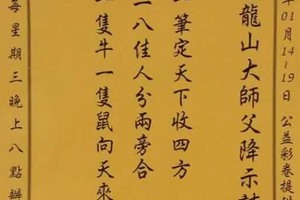 年01月14~19日 公益彩卷提
龍山大師父降示
筆定天下收四方
八佳人分兩旁合
隻牛一隻鼠向天來
每星期三晚上八點辦